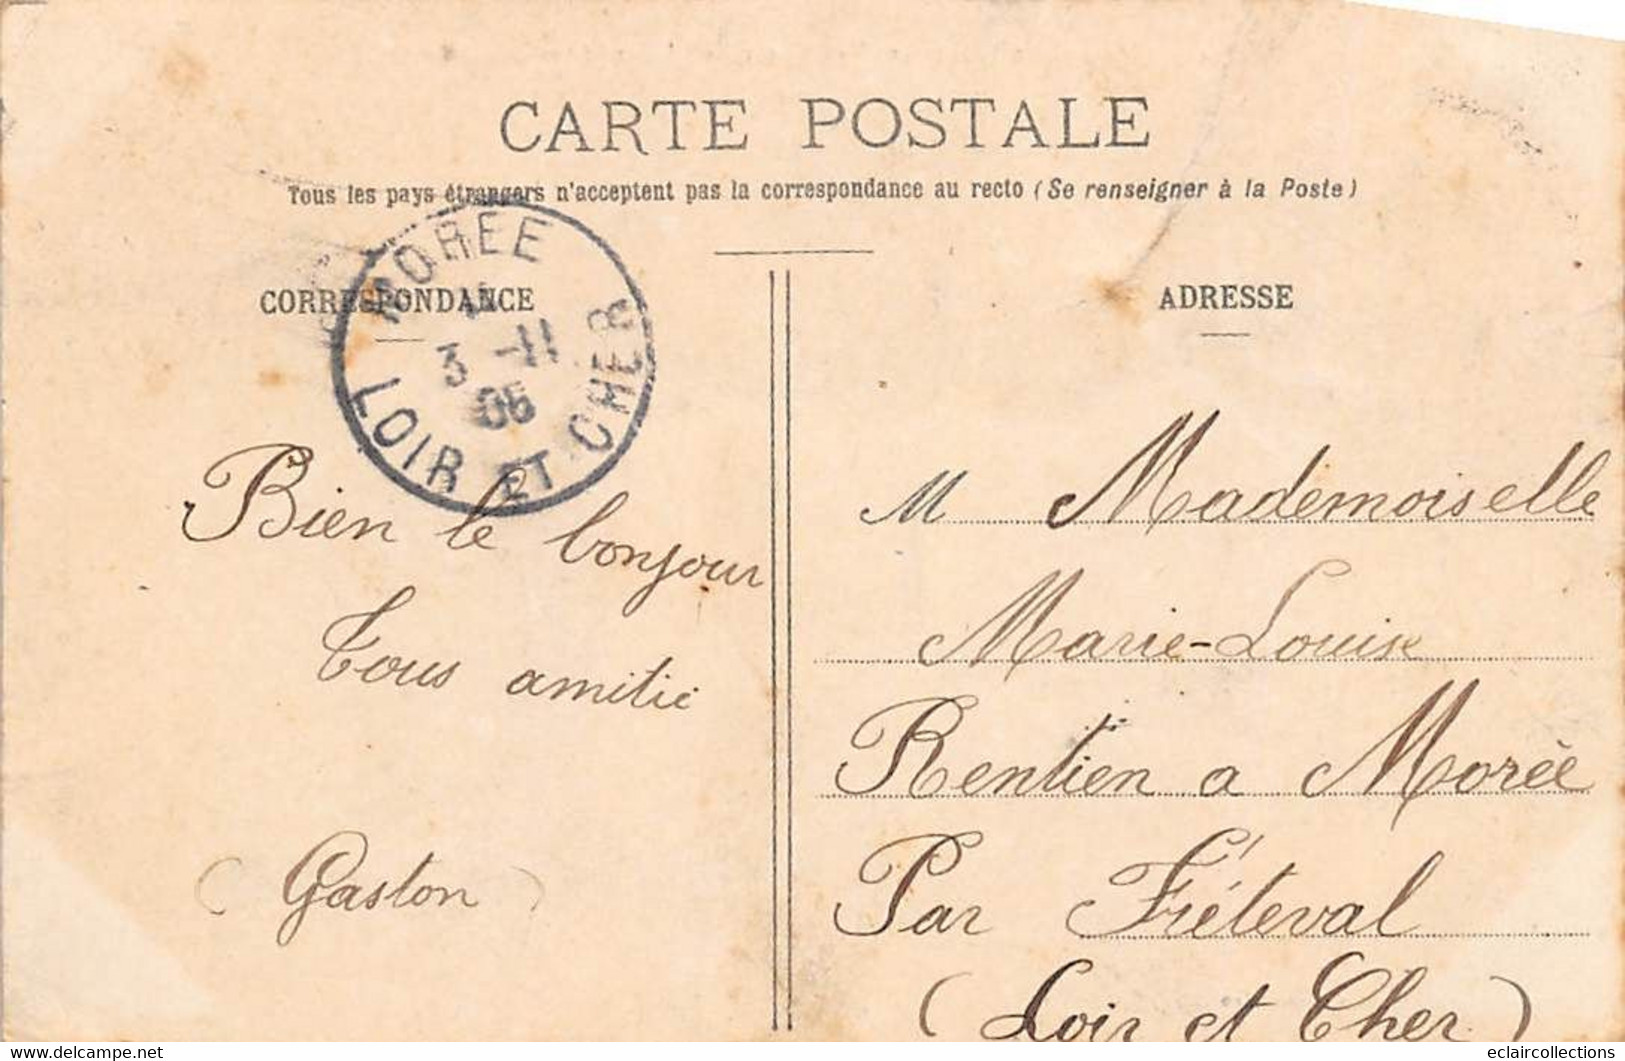 CARTE POSTALE
Tous les pays étrangers n'acceptent pas la correspondance au recto (Se renseigner à la Poste)
CORRESPONDANCE
MOREE
3 -11
LOIR ET CHER
Bien le bonjour
Tous amitié
(Gaston)
ADRESSE
M Mademoiselle
Marie-Louise
Rentien a Morée
Par Fréteval
(Loir et Cher)
eclaircollections